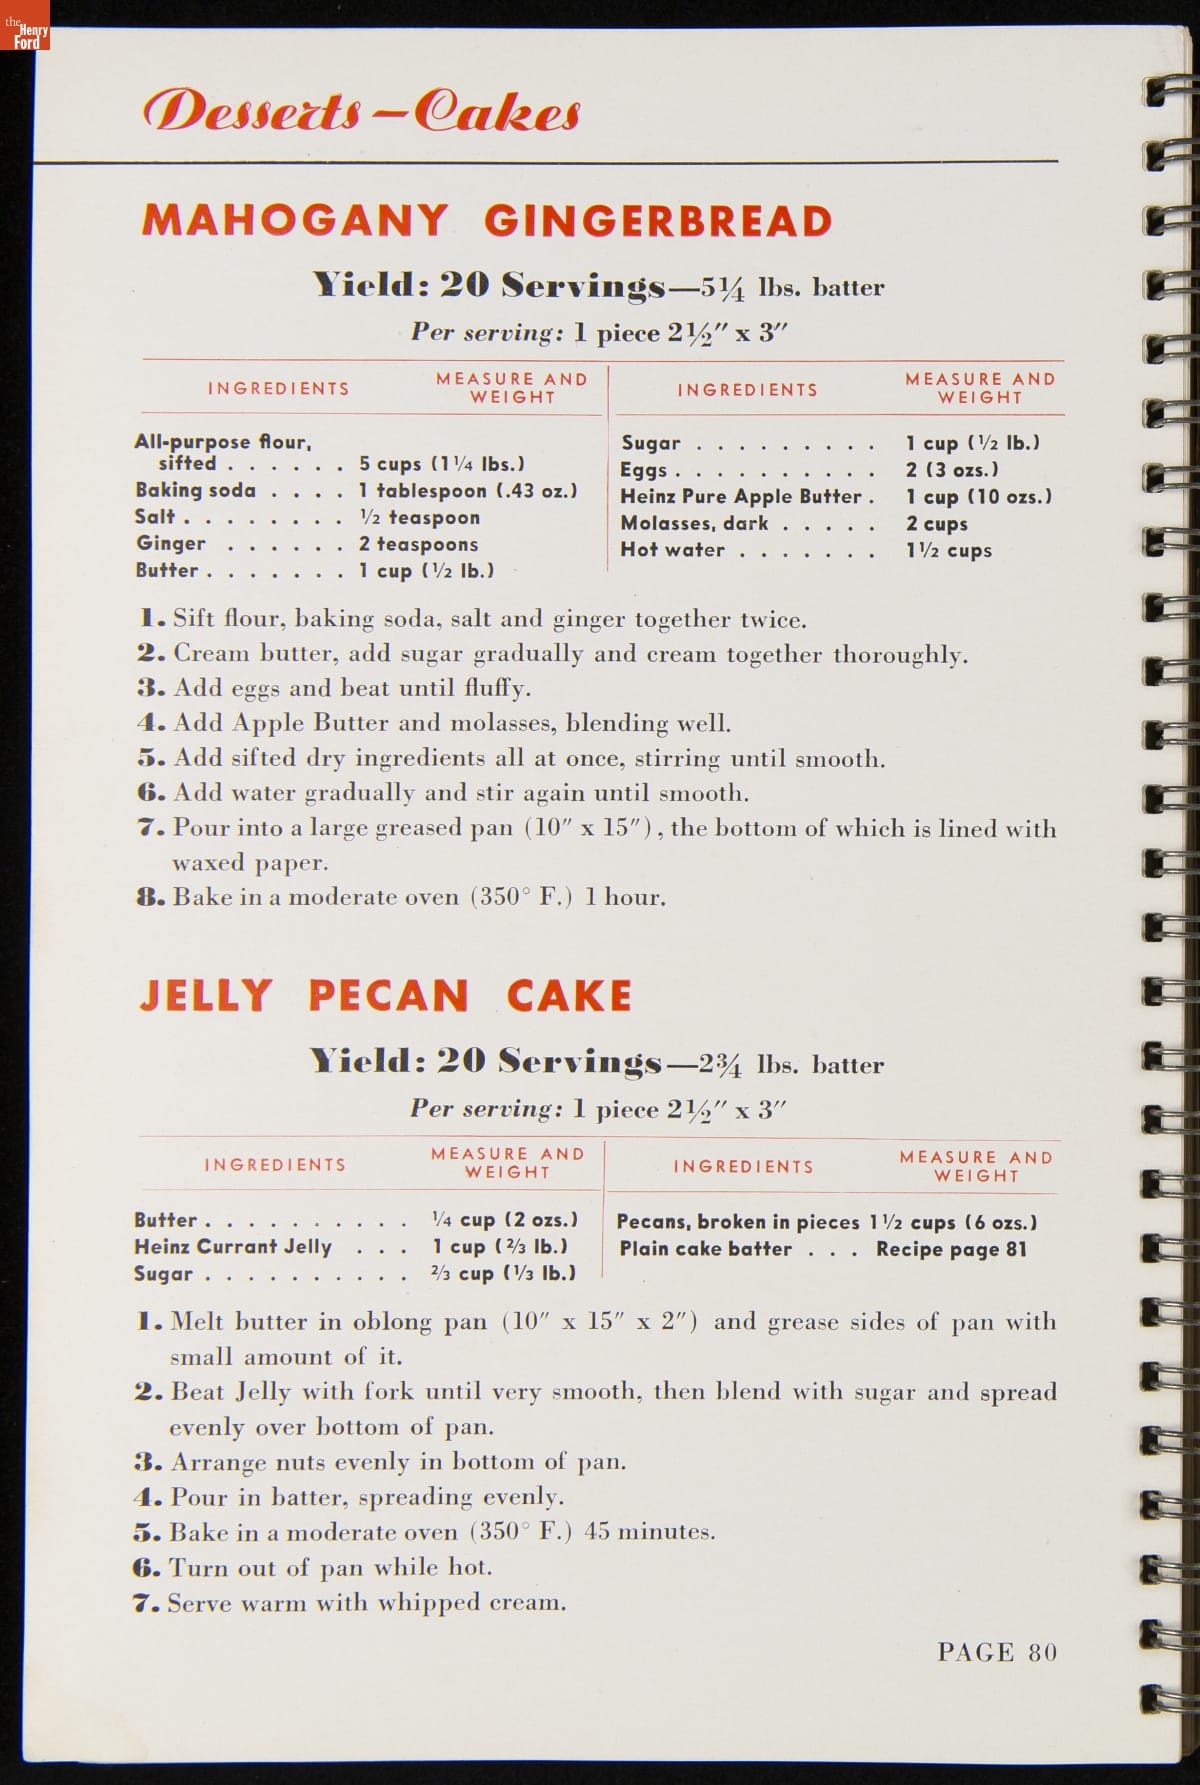 the
Henry
Ford
Desserts – Cakes
MAHOGANY GINGERBREAD
Yield: 20 Servings—5¼ lbs. batter
Per serving: 1 piece 2½″ x 3″
INGREDIENTS MEASURE AND WEIGHT INGREDIENTS MEASURE AND WEIGHT
All-purpose flour,
sifted . . . . . . 5 cups (1¼ lbs.)
Baking soda . . . . 1 tablespoon (.43 oz.)
Salt . . . . . . . . ½ teaspoon
Ginger . . . . . . 2 teaspoons
Butter . . . . . . . 1 cup (½ lb.)
Sugar . . . . . . . . . 1 cup (½ lb.)
Eggs . . . . . . . . . . 2 (3 ozs.)
Heinz Pure Apple Butter . 1 cup (10 ozs.)
Molasses, dark . . . . . 2 cups
Hot water . . . . . . . 1½ cups
1. Sift flour, baking soda, salt and ginger together twice.
2. Cream butter, add sugar gradually and cream together thoroughly.
3. Add eggs and beat until fluffy.
4. Add Apple Butter and molasses, blending well.
5. Add sifted dry ingredients all at once, stirring until smooth.
6. Add water gradually and stir again until smooth.
7. Pour into a large greased pan (10″ x 15″), the bottom of which is lined with
waxed paper.
8. Bake in a moderate oven (350° F.) 1 hour.
JELLY PECAN CAKE
Yield: 20 Servings—2¾ lbs. batter
Per serving: 1 piece 2½″ x 3″
INGREDIENTS MEASURE AND WEIGHT INGREDIENTS MEASURE AND WEIGHT
Butter . . . . . . . . . . ¼ cup (2 ozs.)
Heinz Currant Jelly . . . 1 cup (⅔ lb.)
Sugar . . . . . . . . . . ⅔ cup (⅓ lb.)
Pecans, broken in pieces 1½ cups (6 ozs.)
Plain cake batter . . . Recipe page 81
1. Melt butter in oblong pan (10″ x 15″ x 2″) and grease sides of pan with
small amount of it.
2. Beat Jelly with fork until very smooth, then blend with sugar and spread
evenly over bottom of pan.
3. Arrange nuts evenly in bottom of pan.
4. Pour in batter, spreading evenly.
5. Bake in a moderate oven (350° F.) 45 minutes.
6. Turn out of pan while hot.
7. Serve warm with whipped cream.
PAGE 80